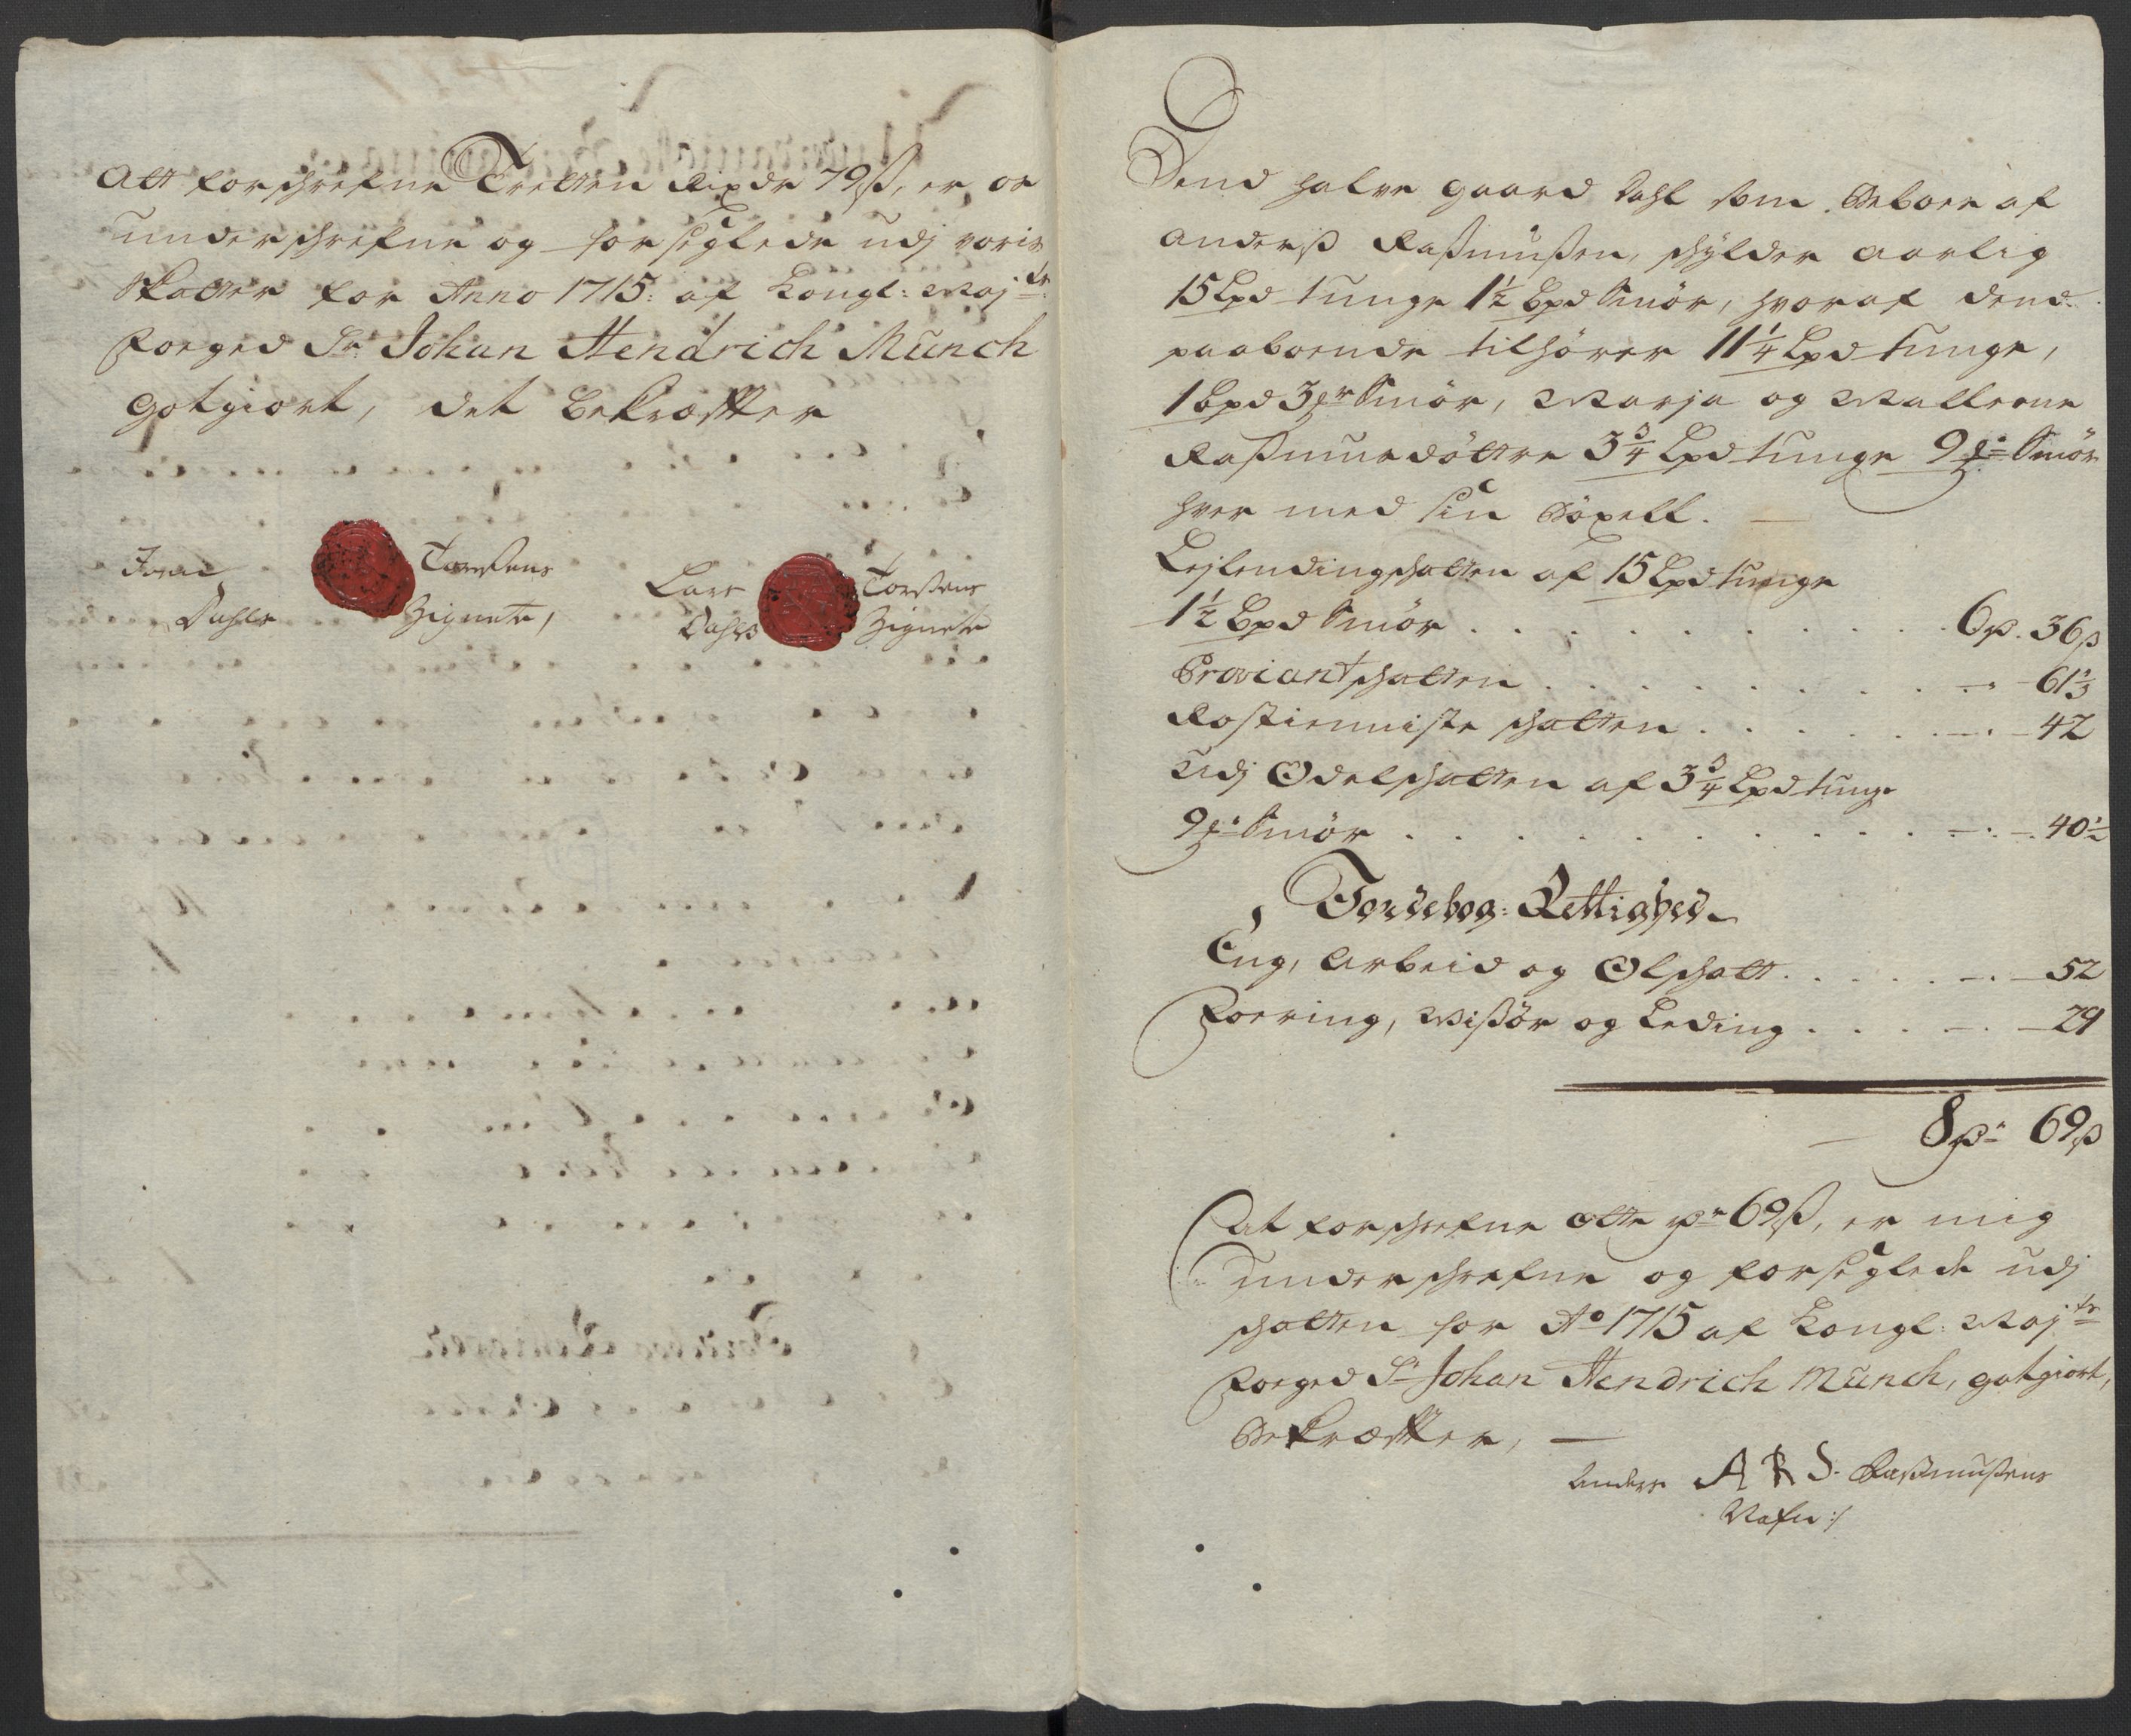 Att forschrefne Tretten Rixdr 79ß, er os
underschrefne og forseglede udj voris
Skatter for Anno 1715: af Kongl: Maj:ts
Foeged Sr: Johan Hendrich Münch
gotgiort, det bekræffter
Torßens Lars Torßens
Dahls Zignete, Dahls Zignete
Dend halve gaard Dahl som beboes af
Anderß Raßmußen, schylder aarlig
15 Lpd tunge 1½ Bpd Smör, hvoraf dend
paaboende tilhører 11¼ Lpd tunge,
1 Bpd 3 Smör, Marja og Malleene
Raßmusdöttre 3¾ Lpd tunge 9 Smör
hver med sin böxell.
Lejlendingschatten af 15 Lpd tunge
1½ Bpd Smör . . . . . . . . . 6 . 36ß
Proviantschatten . . . . . . . . — 61⅓
Rostienniste schatten . . . . . . — 42
Udj Odelschatten af 3¾ Lpd tunge
9 Smör . . . . . . . . . . — . — 40½
Jordebog: Rettighed
Eng, Arbeid og Olschatt . . . . . — 52
Foering, Wißör og Leding . . . . — 29
8 69ß
At forschrefne otte 69ß, er mig
underschrefne og forseglede udj
schatten for Ao 1715 af Kongl: Maj:ts
Foeged Sr Johan Hendrich Münch, gotgiort,
Bekræffter, —
Anders A R S. Raßmußens
Nafn:/